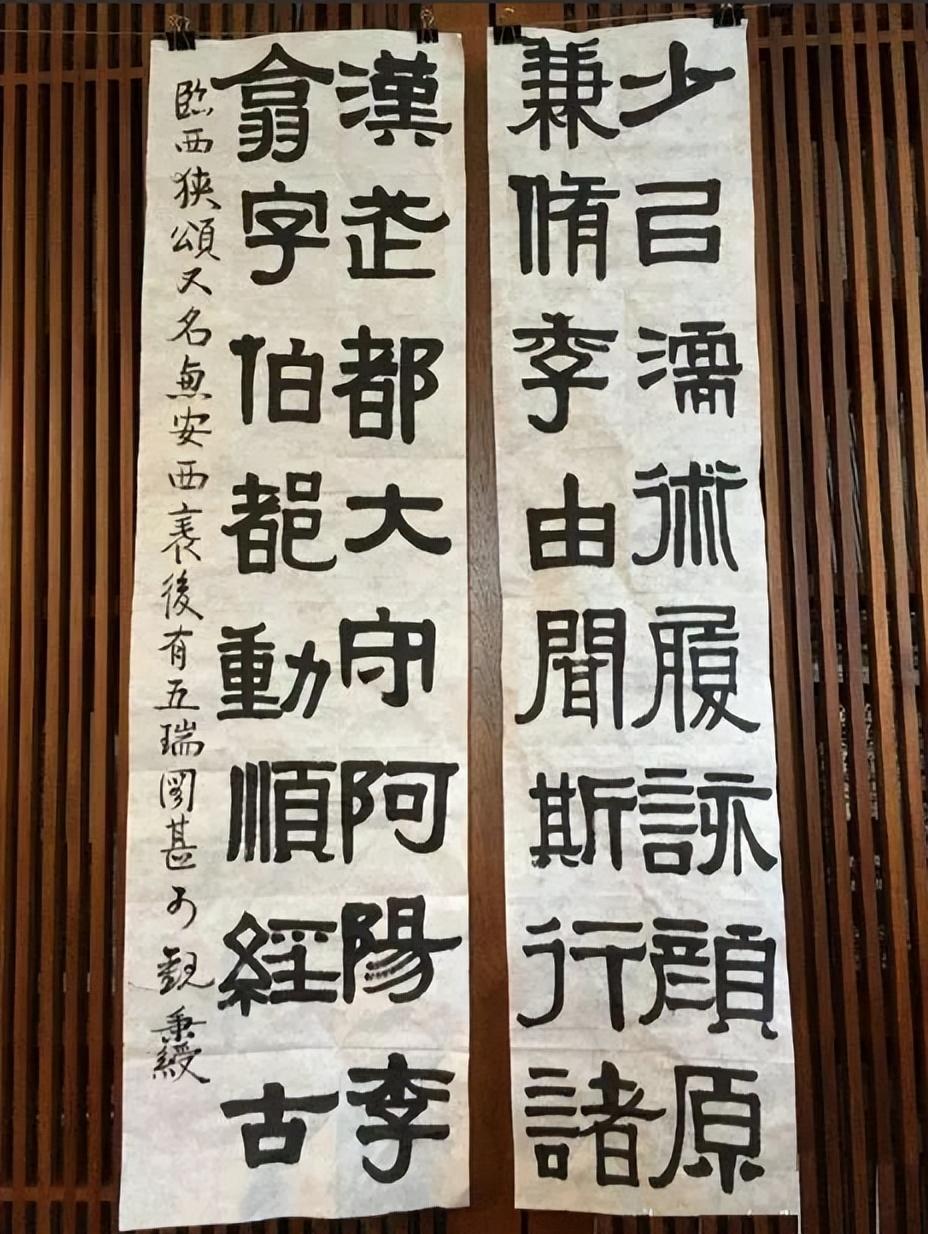 少㠯濡術履詠顏原
兼脩季由聞斯行諸
漢武都大守阿陽李
翕字伯都動順經古
臨西狹頌又名惠安西表後有五瑞圖甚可觀秉綬